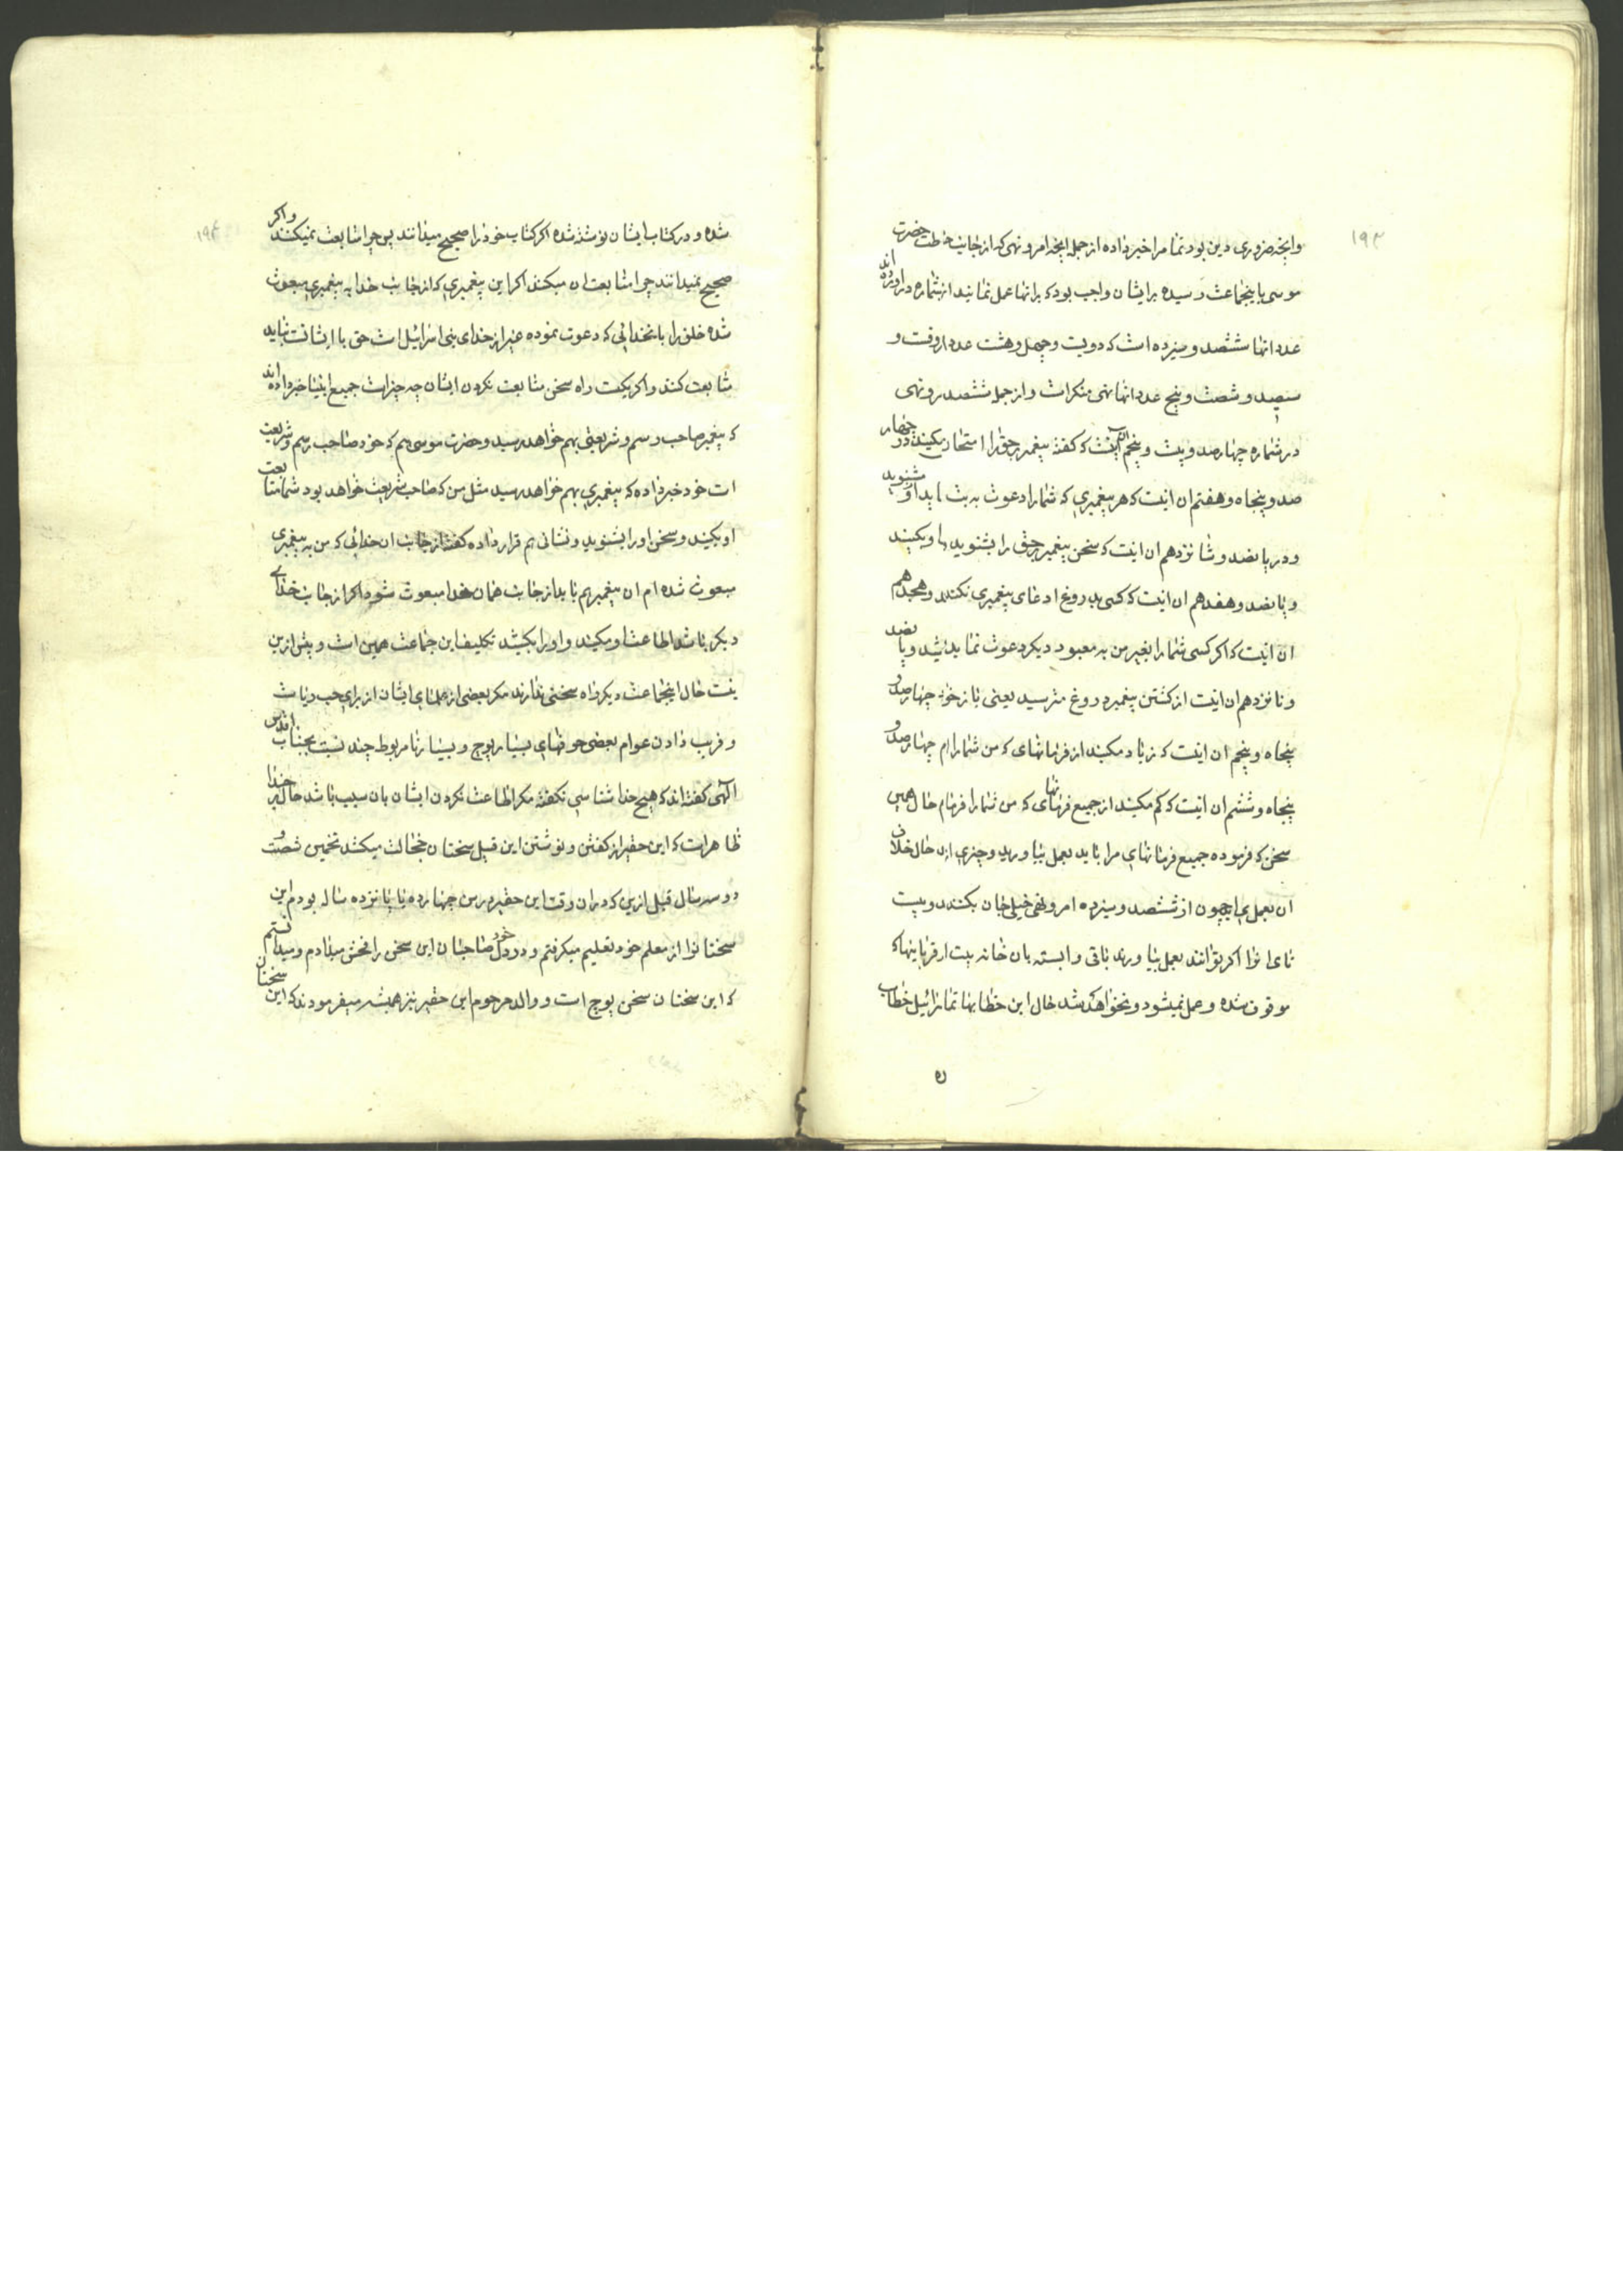 ۱۹۳
وانچه ضروری دین بود تمام را خبر داده از جمله انچه امر و نهی که از جانب حضرت
موسی باینجماعت رسیده برایشان واجب بود که برانها عمل نمایند از شماره در اورده اند
عدد انها ششصد و سیزده است که دویست و چهل و هشت عدد ان و
سیصد و شصت و پنج عدد انها نهی منکر است و از جمله ششصد و نهی
در شماره چهار صد و بیست و پنجم انست که گفته پیغمبر حق را امتحان مکنید و در چهار
صد و پنجاه و هفتم ان اینست که هر پیغمبری که شما را دعوت به بت نماید از او مشنوید
و در پانصد و شانزدهم ان اینست که سخن پیغمبر حق را بشنوید
و پانصد و هفدهم ان اینست که کسی بدروغ ادعای پیغمبری نکند و هجدهم
ان اینست که اگر کسی شما را بغیر من به معبود دیگر دعوت نماید و پانصد
و نانزدهم ان اینست از کشتن پیغمبر دروغ مترسید یعنی چهار صد و
پنجاه و پنجم ان اینست که زیاد مکنید از فرمانهای که من شما را ام چهار صد و
پنجاه و ششم ان اینست که کم مکنید از جمیع فرمانهای که من شما را فرمام حال همین
سخن که فرموده جمیع فرمانهای مرا باید بعمل بیاورید و چیزی حال خلاف
ان بعمل می چون از ششصد و سیزده امر و نهی بکنند دویست
تای انرا اگر توانند بعمل بیاورند باقی وابسته بان خانه بیت از قربانیها که
موقوف شده و عمل نمیشود و نخواهد شد حال این خطابها تمام خطاب
۱۹۴
شده و در کتاب ایشان نوشته شده اگر کتاب خود را صحیح میدانند پس چرا متابعت نمیکنند و اگر
صحیح نمیدانند چرا متابعت ان میکنند اگر این پیغمبری که از جانب خدا به پیغمبری مبعوث
شده خلق را بانخدائی که دعوت نموده غیر از خدای بنی اسرائیل است حق با ایشانست نباید
متابعت کنند و اگر یکیست راه سخن متابعت نکردن ایشان چه چیز است جمیع انبیا خبر داده اند
که پیغمبر صاحب رسم و شریعتی بهم خواهد رسید و حضرت موسی هم که خود صاحب رسم و شریعت
است خود خبر داده که پیغمبری بهم خواهد رسید مثل من که صاحب شریعت خواهد بود شما متابعت
او بکنید و سخن او را بشنوید و نشانی هم قرار داده گفته از جانب ان خدائی که من به پیغمبری
مبعوث شده ام ان پیغمبر هم باید از جانب همان خدا مبعوث شود اگر از جانب خدای
دیگر باشد اطاعت او مکنید و او را بکشید تکلیف این جماعت همین است و بیش ازین
نیست حال اینجماعت دیگر راه سخنی ندارند مگر بعضی از علمای ایشان از برای حب ریاست
و فریب دادن عوام بعضی حرفهای بسیار پوچ و بسیار نامربوط چند نسبت بجناب اقدس
الهی گفته اند که هیچ خدا شناسی نگفته مگر اطاعت نکردن ایشان بان سبب باشد حال بر خدا
ظاهر است که این حقیر از گفتن و نوشتن این قبیل سخنان خجالت میکشد تخمین شصت و
دو سه سال قبل ازین که دران وقت این حقیر در سن چهارده یا پانزده ساله بودم این
سخنانرا از معلم خود تعلیم میگرفتم و در دل خود صاحبان این سخن را فحش میدادم و میدانستم
که این سخنان سخن پوچ است و والد مرحوم این حقیر نیز همیشه میفرمودند که این سخنان